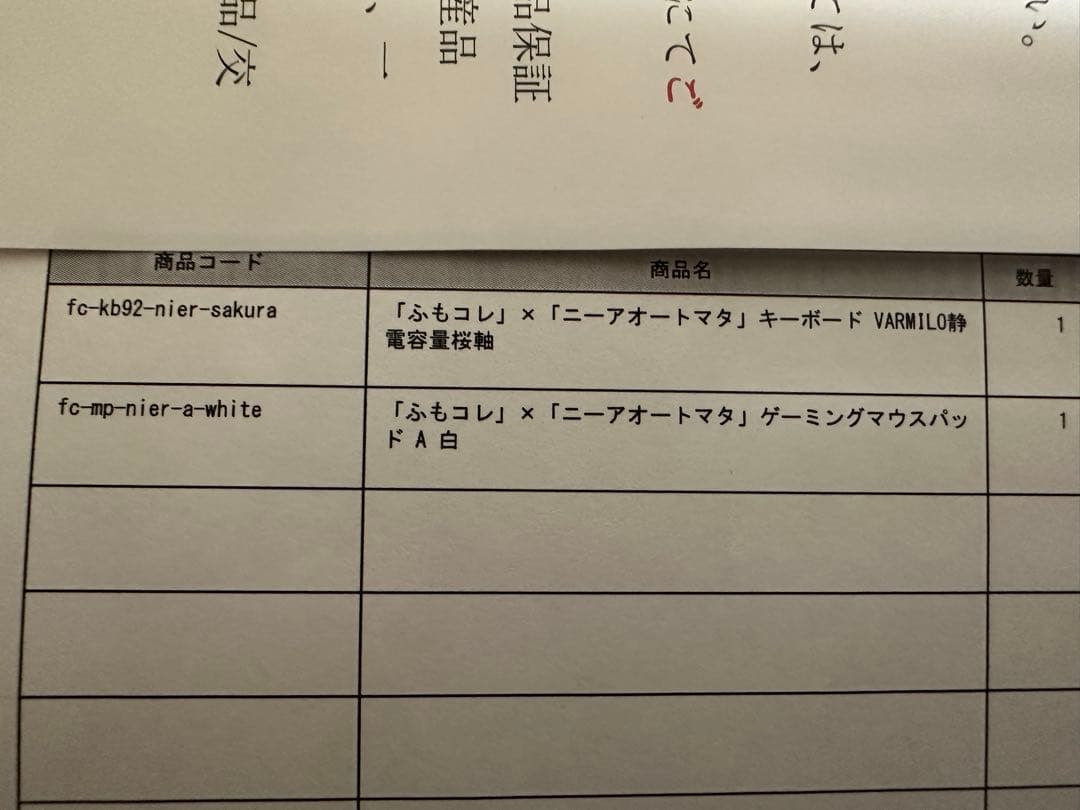 い。
ては、
にてご
品保証
産品
、一
品/交
商品コード 商品名 数量
fc-kb92-nier-sakura 「ふもコレ」×「ニーアオートマタ」キーボード VARMILO静 1
電容量桜軸
fc-mp-nier-a-white 「ふもコレ」×「ニーアオートマタ」ゲーミングマウスパッ 1
ド A 白